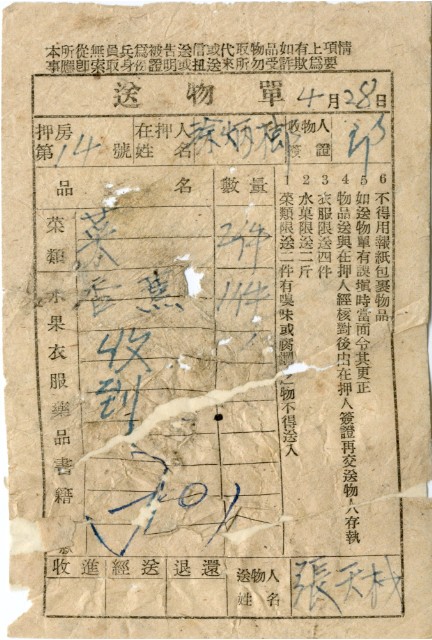 本所從無員兵爲被告送信或代取物品如有上項情
事應卽索取身份證明或扭送來所勿受詐欺爲要
送物單 4月28日
押房第14號
在押人姓名 炳
收物人簽證
品名 數量
菜類水果衣服藥品書籍
菜 2件
香蕉 1件
收到
1 菜類限送二件有嗅味或腐潤之物不得送入
2 水菓限送二斤
3 衣服限送四件
4 物品送與在押人經核對後由在押人簽證再交送物人存執
5 如送物單有誤塡時當面令其更正
6 不得用報紙包裹物品
收進 經送 退還
送物人姓名 張天